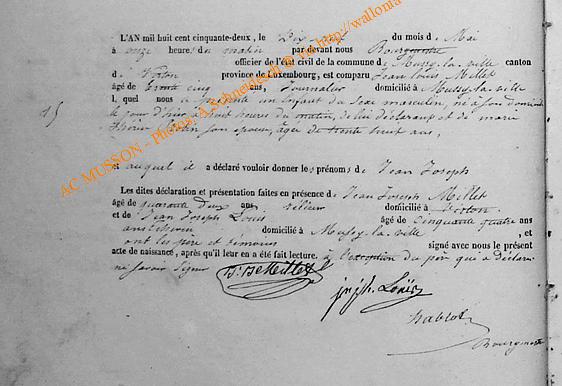 L'AN mil huit cent cinquante-deux, le Dix-neuf du mois de Mai
à onze heures du matin par devant nous Bourgmestre
officier de l'état civil de la commune de Mussy-la-ville canton
de Virton province de Luxembourg, est comparu Jean Louis Millet
âgé de trente cinq ans, Journalier domicilié à Mussy-la-ville
l quel nous a présenté un Enfant du Sexe masculin, né à Son domicile
15 le jour d'hier à huit heures du matin, de lui déclarant et de marie
son épouse, âgée de trente huit ans,
et auquel il a déclaré vouloir donner les prénoms de Jean Joseph
Les dites déclaration et présentation faites en présence de Jean Joseph Millet
âgé de quarante Deux ans relieur domicilié à Virton
et de Jean Joseph Louis âgé de cinquante quatre ans
domicilié à Mussy-la-ville, et
ont les père et témoins signé avec nous le présent
acte de naissance, après qu'il leur en a été fait lecture. à l'exception du père qui a déclaré
ne savoir signer
Millet
Louis
Hablot
Bourgmestre
AC MUSSON - Photos: A.Schneidesch © via http://wallonia